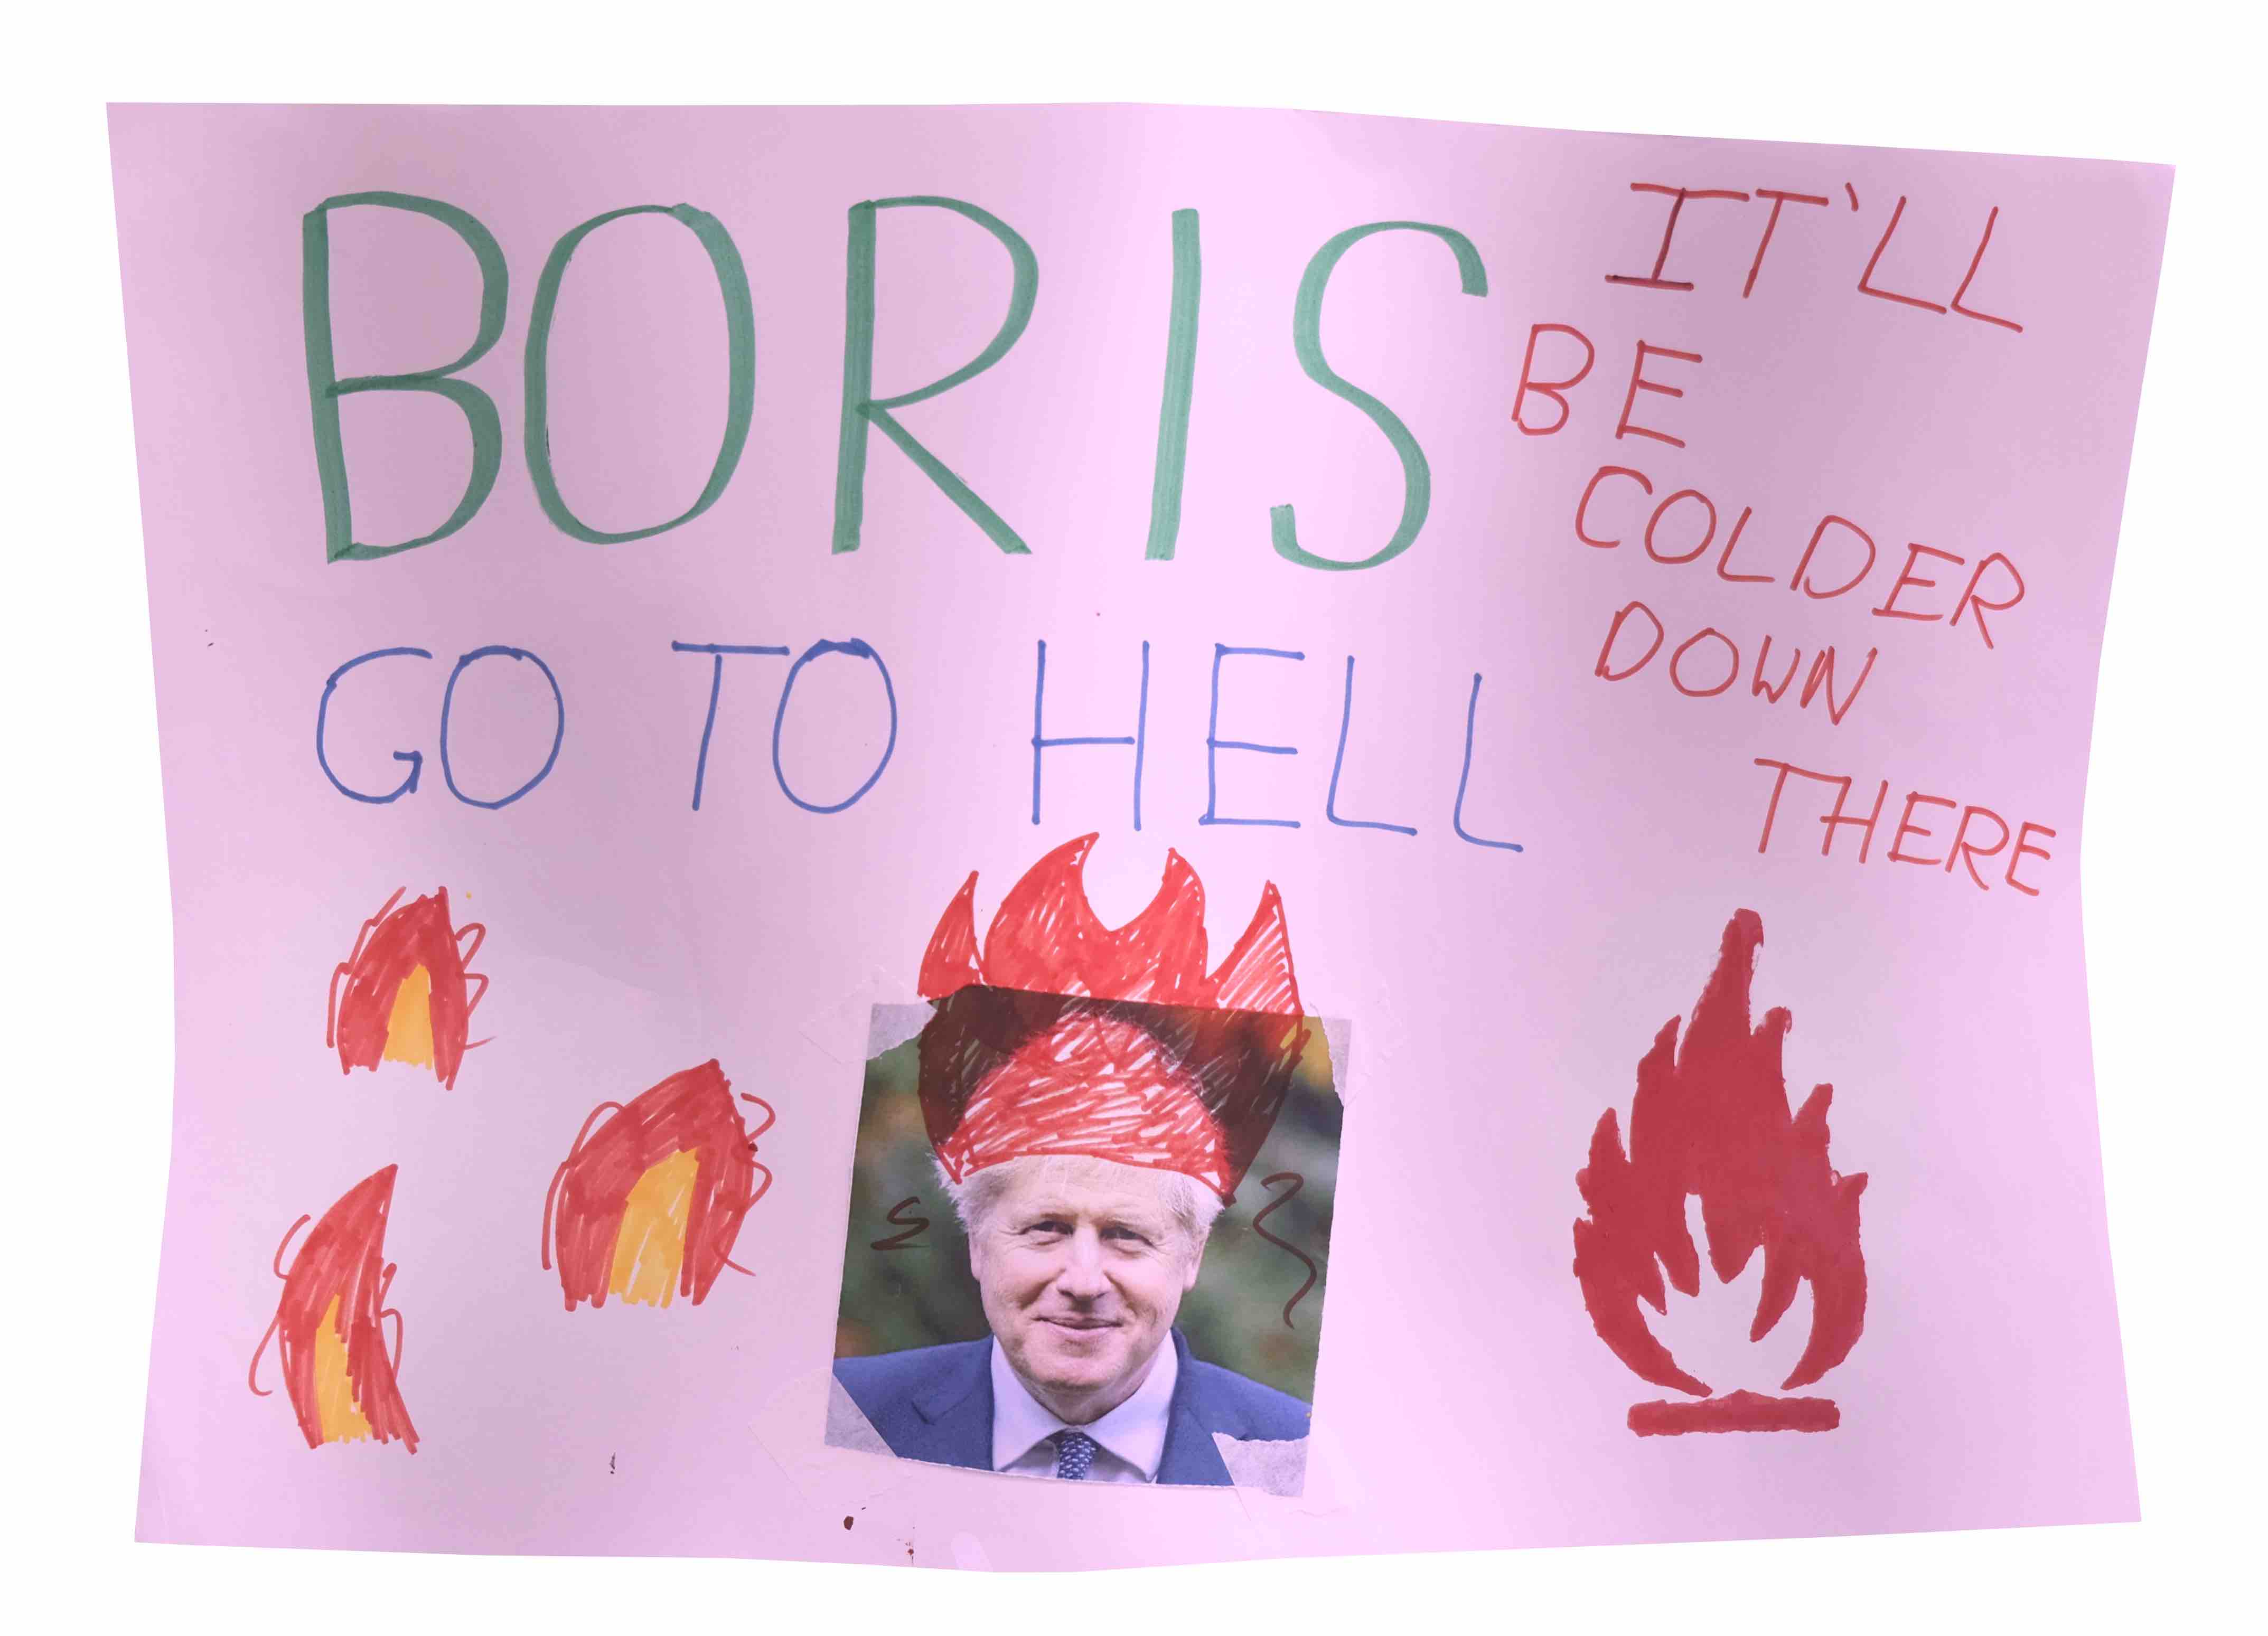 BORIS
GO TO HELL
IT'LL
BE
COLDER
DOWN
THERE